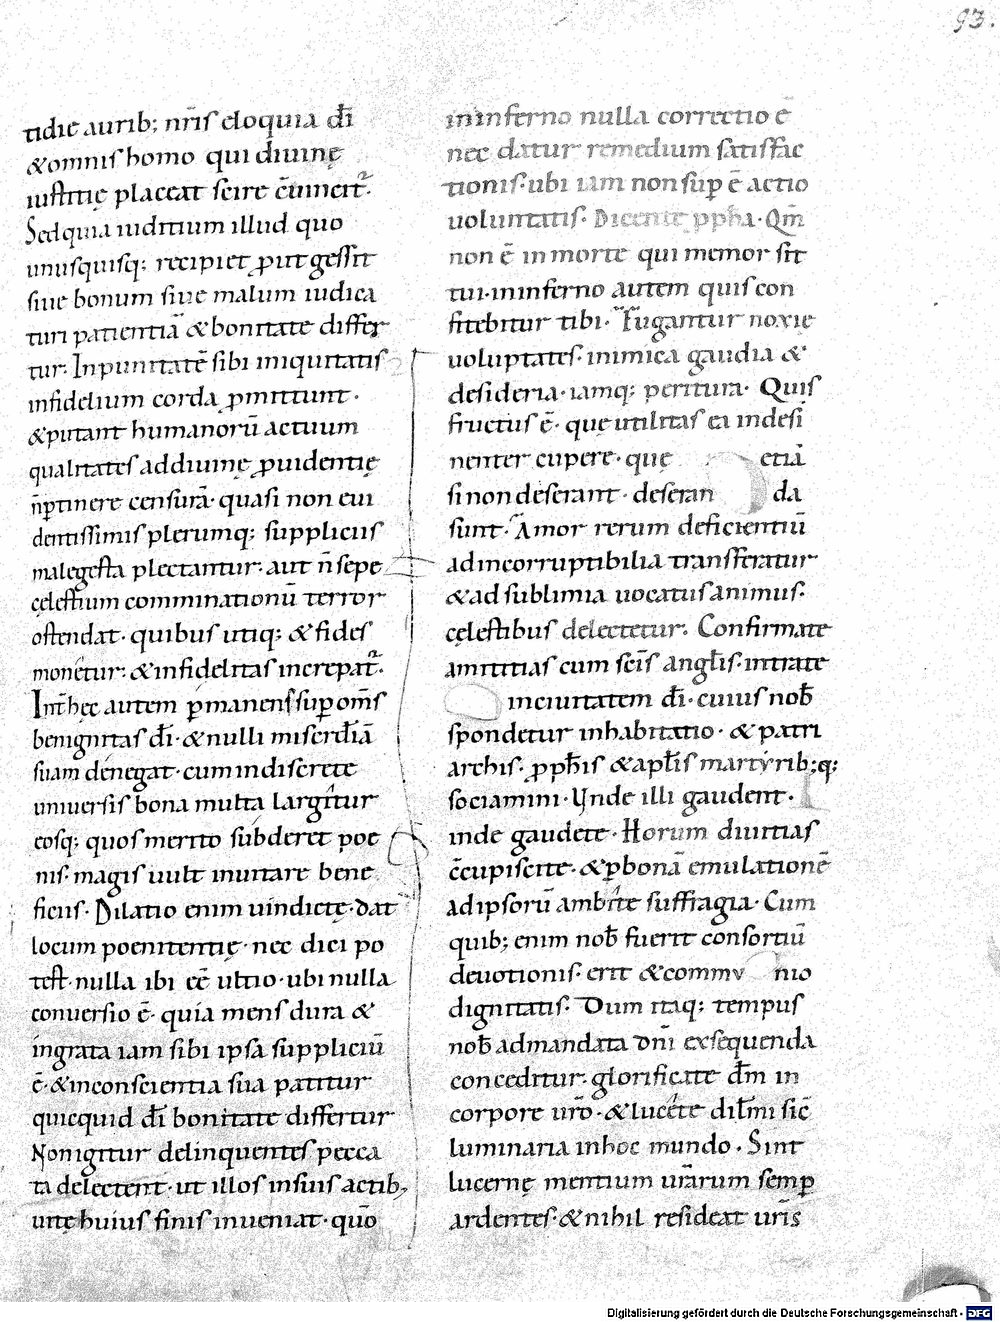 93.
tidie aurib; nr̄is eloquia dī
&omnis homo qui diuinę
iustitię placeat scire c̄uincit̃.
Sed quia iuditium illud quo
unusquisq; recipiet ꝓut gessit
siue bonum siue malum iudica
turi patientiā & bonitate differ
tur. Inpunitatē sibi iniquitatis
infidelium corda ꝓmittunt.
&putant humanorū actuum
qualitates addiuinę ꝓuidentię
n̄ꝑtinere censurā. quasi non eui
dentissimis plerumq; suppliciis
malegesta plectantur. aut n̄ sepe
cęlestium comminationū terror
ostendat. quibus utiq; & fides
monetur. & infidelitas increpat̃.
Int̄ hęc autem ꝑmanens sup om̄s
benignitas dī. & nulli misercd̄iā
suam denegat. cum indiscrete
uniuersis bona multa largitur
eosq; quos merito subderet poe
nis. magis uult inuitare bene
ficiis. Dilatio enim uindictę. dat
locum poenitentię. nec dici po
test. nulla ibi eē ultio. ubi nulla
conuersio ē. quia mens dura &
ingrata iam sibi ipsa suppliciū
ē. & inconscientia sua patitur
quicquid dī bonitate differtur
Nonigitur delinquentes pecca
ta delectent. ut illos insuis actib;
uitę huius finis inueniat. quō
ininferno nulla correctio ē
nec datur remedium satisfac
tionis. ubi iam non sup ē actio
uoluntatis. Dicente ꝓph̄a. Qm̄
non ē inmorte qui memor sit
tui. ininferno autem quis con
fitebitur tibi. Fugantur noxię
uoluptates. inimica gaudia &
desideria. iamq; peritura. Quis
fructus ē. que utilitas ea indesi
nenter cupere. quę etiā
si non deserant. deseran da
sunt. Amor rerum deficientiū
adincorruptibilia transferatur
& ad sublimia uocatus animus.
cęlestibus delectetur. Confirmate
amititias cum scīs angl̄is. intrate
inciuitatem dī. cuius nob̄
spondetur inhabitatio. & patri
archis. ꝓph̄is & apl̄is martyrib;q;
sociamini. Unde illi gaudent.
inde gaudete. Horum diuitias
c̄cupiscite. & ꝑbonā emulationē
adipsorū ambite suffragia. Cum
quib; enim nob̄ fuerit consortiū
deuotionis. erit & commu nio
dignitatis. Dum itaq; tempus
nob̄ admandata dn̄i exsequenda
conceditur. glorificate dm̄ in
corpore ur̄o. & lucete dil̄mi sic̄
luminaria inhoc mundo. Sint
lucernę mentium ur̄arum semꝑ
ardentes. & nihil resideat ur̄is
Digitalisierung gefördert durch die Deutsche Forschungsgemeinschaft - DFG